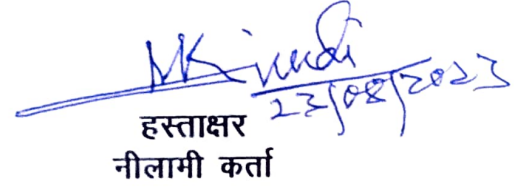 23/08/2023
हस्ताक्षर
नीलामी कर्ता